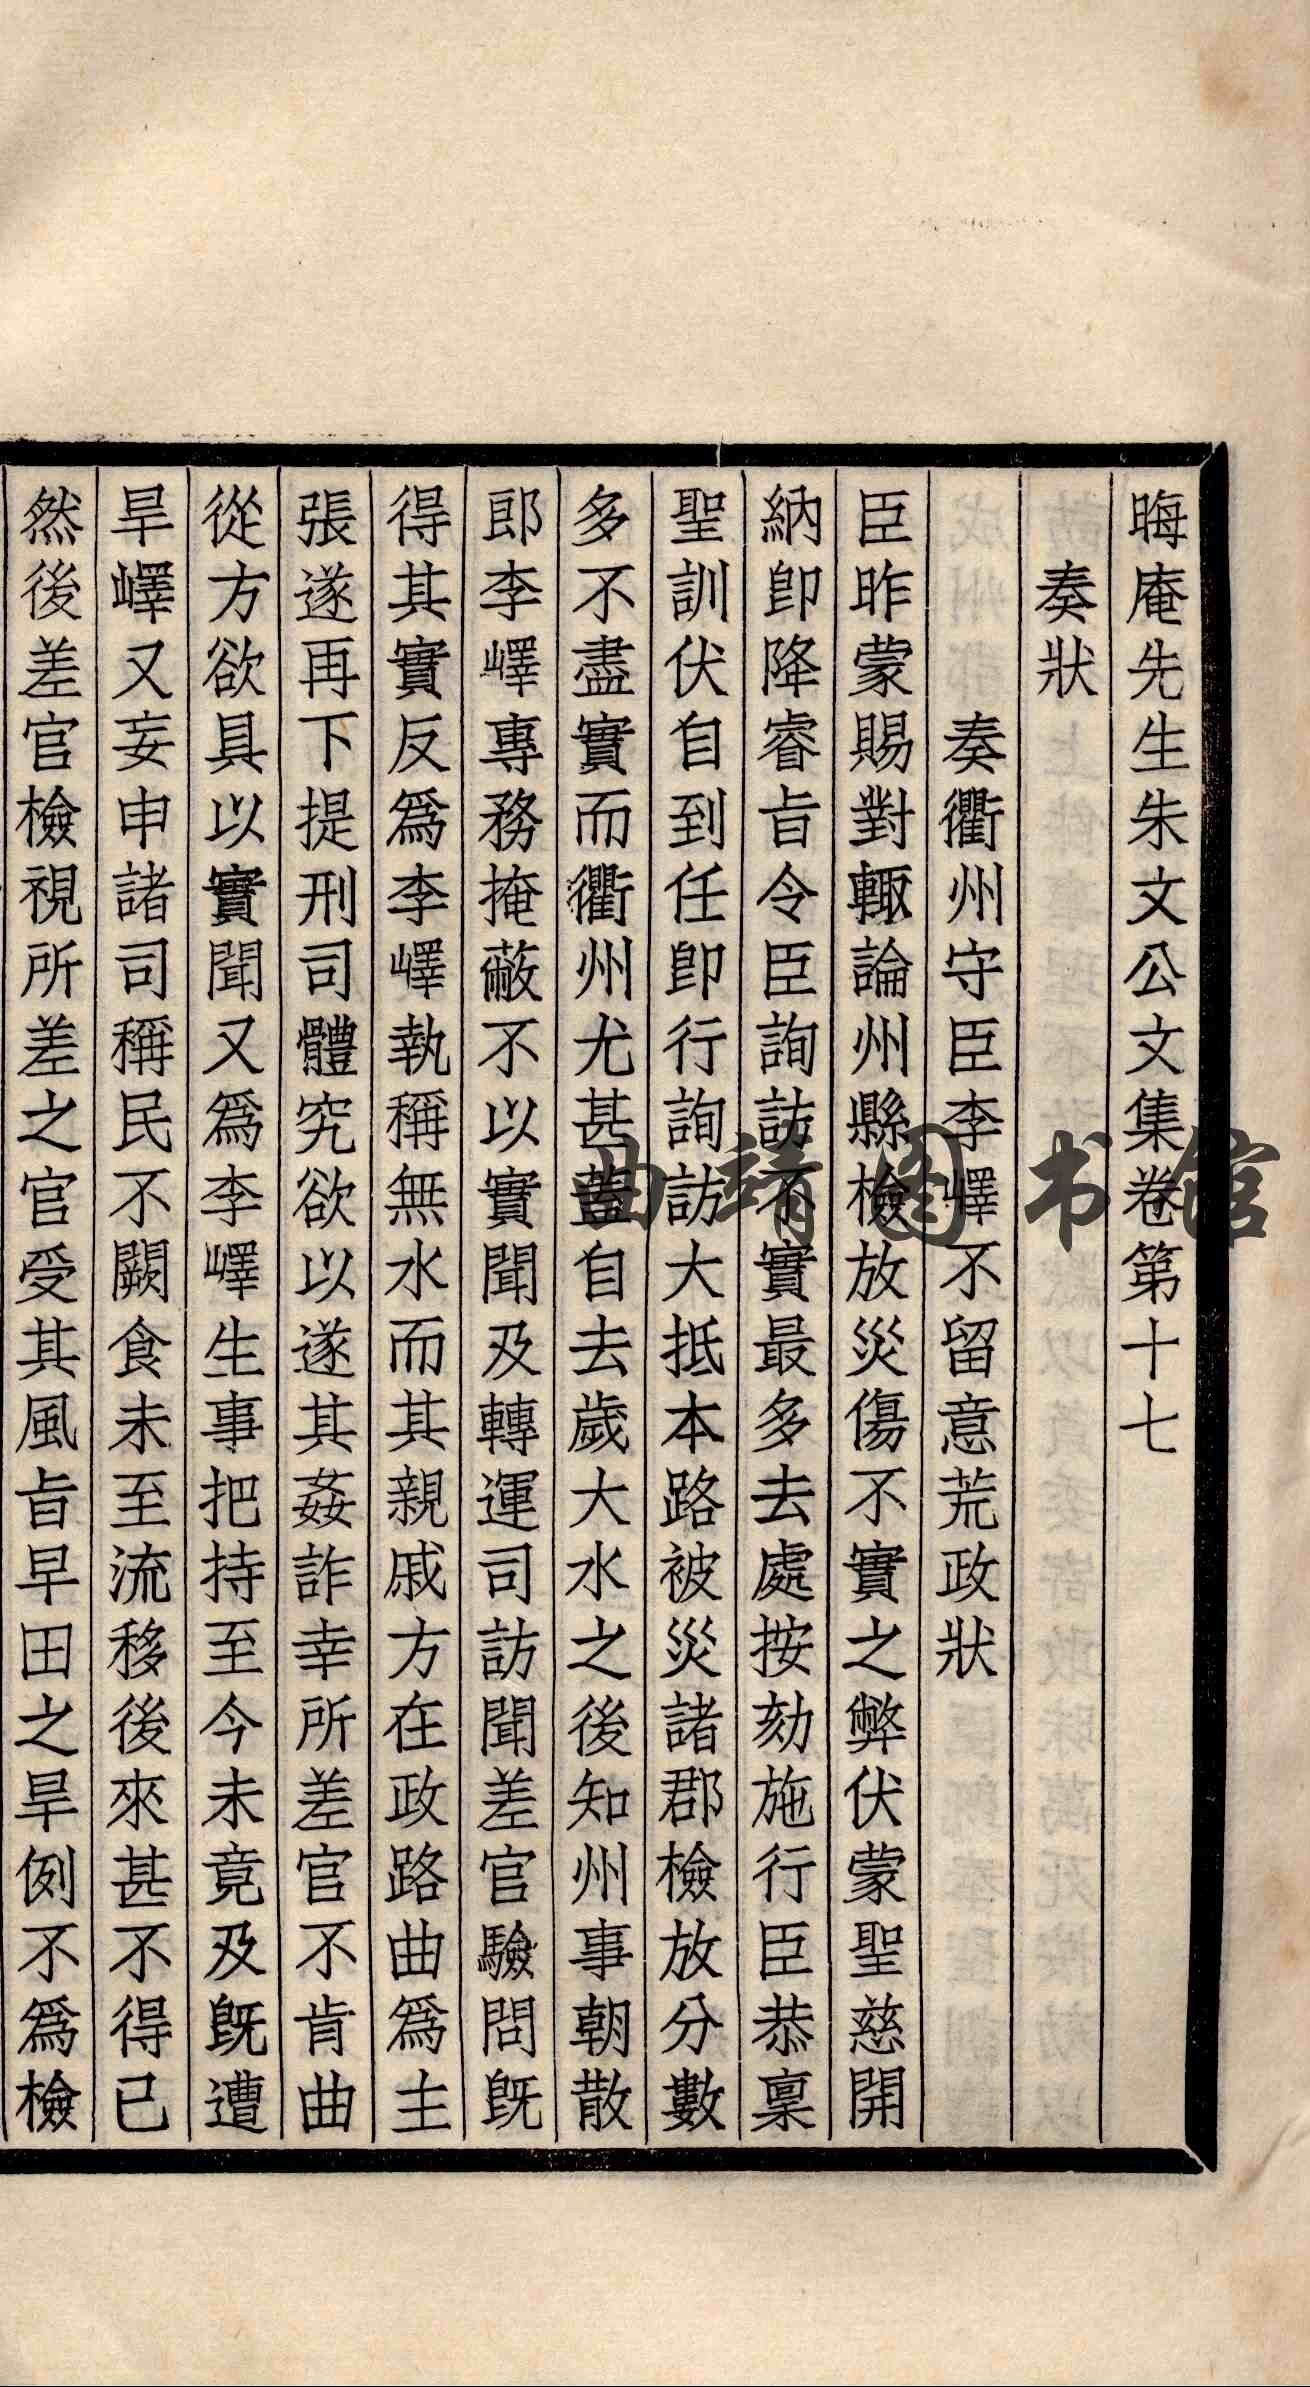 晦庵先生朱文公文集卷第十七
奏狀
奏衢州守臣李嶧不留意荒政狀
臣昨蒙賜對輙論州縣檢放災傷不實之弊伏蒙聖慈開
納卽降睿旨令臣詢訪不實最多去處按劾施行臣恭稟
聖訓伏自到任卽行詢訪大抵本路被災諸郡檢放分數
多不盡實而衢州尤甚蓋自去歲大水之後知州事朝散
郎李嶧專務掩蔽不以實聞及轉運司訪聞差官驗問旣
得其實反爲李嶧執稱無水而其親戚方在政路曲爲主
張遂再下提刑司體究欲以遂其姦詐幸所差官不肯曲
從方欲具以實聞又爲李嶧生事把持至今未竟及旣遭
旱嶧又妄申諸司稱民不闕食未至流移後來甚不得已
然後差官檢視所差之官受其風旨早田之旱例不爲檢
曲靖图书馆